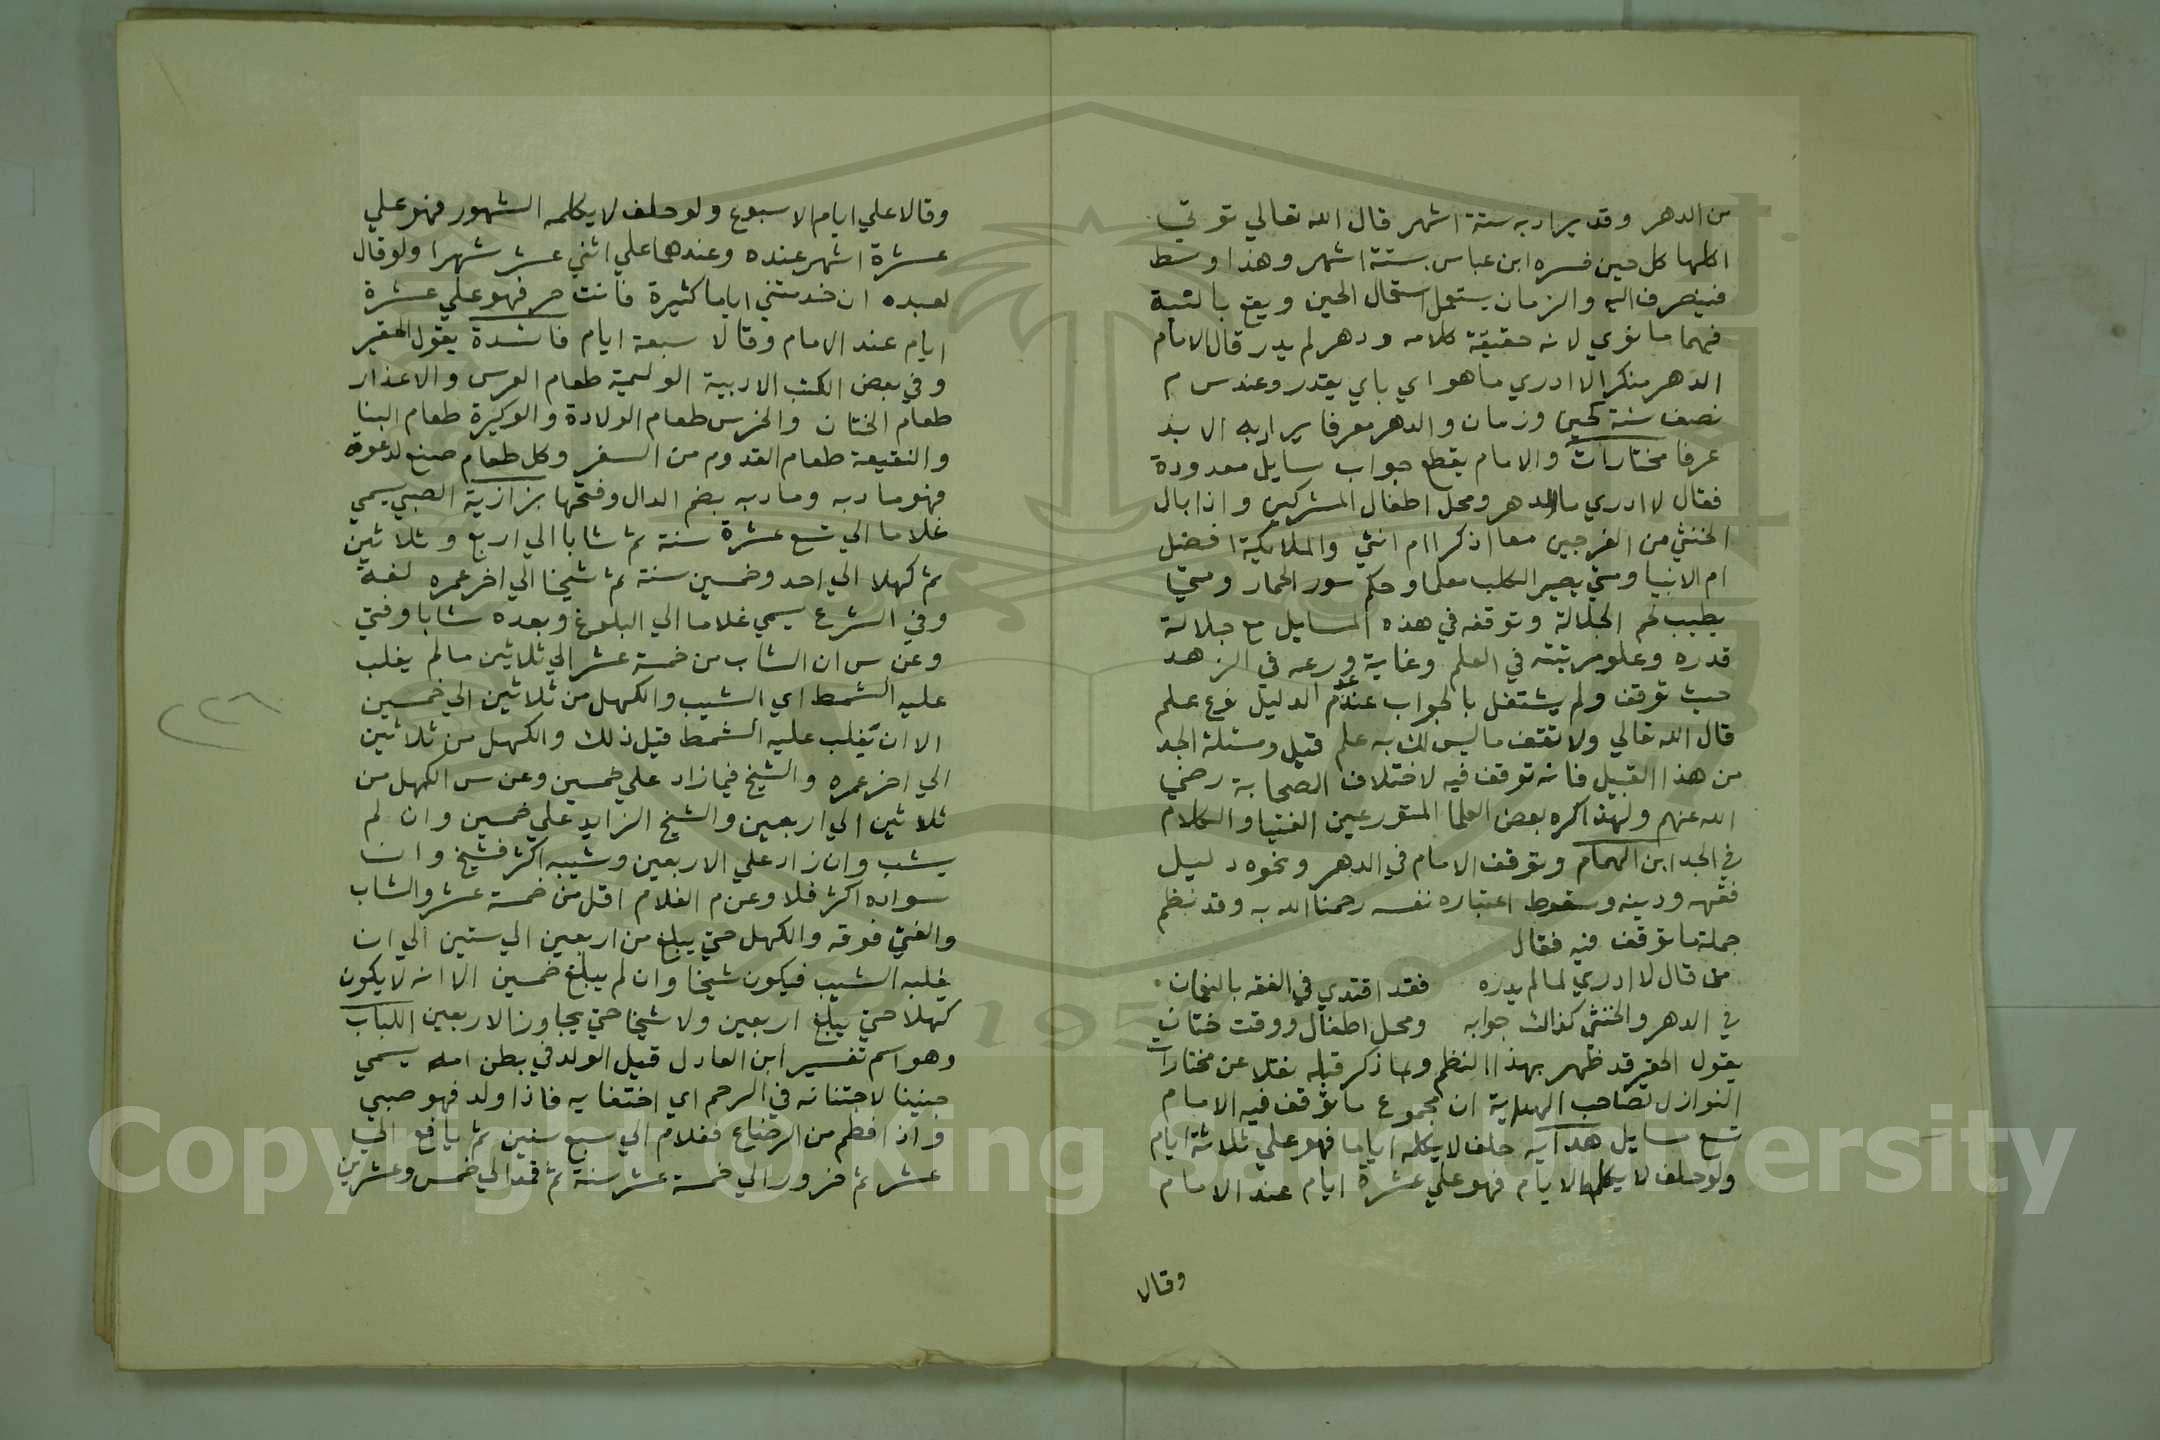 من الدهر وقد يراد به ستة اشهر قال الله تعالي توتي
اكلها كل حين فسره ابن عباس بستة اشهر وهذا وسط
فينصرف اليه والزمان يستعمل استعمال الحين ويقع بالنية
فيهما ما نوي لانه حقيقة كلامه ودهر لم يدر قال الامام
الدهر منكرا لا ادري ما هو اي باي يقدر وعند س م
نصف سنة كحين وزمان والدهر معرفا يراد به الابد
عرفا مختارات والامام يقطع جواب سايل معدودة
فقال لا ادري ما الدهر ومحل اطفال المشركين واذا بال
الخنثي من الفرجين معا اذكرا ام انثي والملايكة افضل
ام الانبيا ومتي يصير الكلب معلما وحكم سور الحمار ومتي
يطيب لحم الجلالة وتوقفه في هذه المسايل مع جلالة
قدره وعلو مرتبته في العلم وغاية ورعه في الزهد
حيث توقف ولم يشتغل بالجواب عند عدم الدليل فرع علم
قال الله تعالي ولا تقف ما ليس لك به علم قيل ومسئلة الجد
من هذا القبيل فانه توقف فيه لاختلاف الصحابة رضي
الله عنهم ولهذا كره بعض العلما المتورعين الفتيا والكلام
في الجد ابن الهمام وتوقف الامام في الدهر ونحوه دليل
فقهه ودينه وسقوط اعتباره نفسه رحمنا الله به وقد نظم
جملة ما توقف فيه فقال
من قال لا ادري لما لم يدره فقد اقتدي في الفقه بالنعمان
في الدهر والخنثي كذاك جوابه ومحل اطفال ووقت ختان
يقول الحقير قد ظهر بهذا النظم وما ذكر قبله نقلا عن مختارات
النوازل لصاحب الهداية ان مجموع ما توقف فيه الامام
تسع مسايل هدايه حلف لا يكلمه اياما فهو علي ثلاثة ايام
ولو حلف لا يكلمه الايام فهو علي عشرة ايام عند الامام
وقالا
وقالا علي ايام الاسبوع ولو حلف لا يكلمه الشهور فهو علي
عشرة اشهر عنده وعندهما علي اثني عشر شهرا ولو قال
لعبده ان خدمتني اياما كثيرة فانت حر فهو علي عشرة
ايام عند الامام وقالا سبعة ايام فاشدة يقول الحقير
وفي بعض الكتب الادبية الوليمة طعام العرس والاعذار
طعام الختان والخرس طعام الولادة والوكيرة طعام البنا
والنقيعة طعام القدوم من السفر وكل طعام صنع لدعوة
فهو مادبه ومادبه بضم الدال وفتحها بزازية الصبي يسمي
غلاما الي تسع عشرة سنة ثم شابا الي اربع وثلاثين
ثم كهلا الي احد وخمسين سنة ثم شيخا الي اخر عمره لغة
وفي الشرع يسمي غلاما الي البلوغ وبعده شابا وفتي
وعن س ان الشاب من خمسة عشر الي ثلاثين ما لم يغلب
عليه الشمط اي الشيب والكهل من ثلاثين الي خمسين
٢٢٦
الا ان يغلب عليه الشمط قبل ذلك والكهل من ثلاثين
الي اخر عمره والشيخ فيما زاد علي خمسين وعن س الكهل من
ثلاثين الي اربعين والشيخ الزايد علي خمسين وان لم
يشب وان زاد علي الاربعين وشيبه اكثر فشيخ وان
سواده اكثر فلا وعن م الغلام اقل من خمسة عشر والشاب
والفتي فوقه والكهل حتي يبلغ من اربعين الي ستين الي ان
يغلبه الشيب فيكون شيخا وان لم يبلغ خمسين الا انه لا يكون
كهلا حتي يبلغ اربعين ولا شيخا حتي يجاوز الاربعين اللباب
وهو اسم تفسير ابن العادل قيل الولد في بطن امه يسمي
جنينا لاجتنانه في الرحم اي اختفايه فاذا ولد فهو صبي
واذا فطم من الرضاع فغلام الي سبع سنين ثم يافع الي
عشر ثم حزور الي خمسة عشر سنة ثم قمد الي خمس وعشرين
Copyright © King Saud University
195